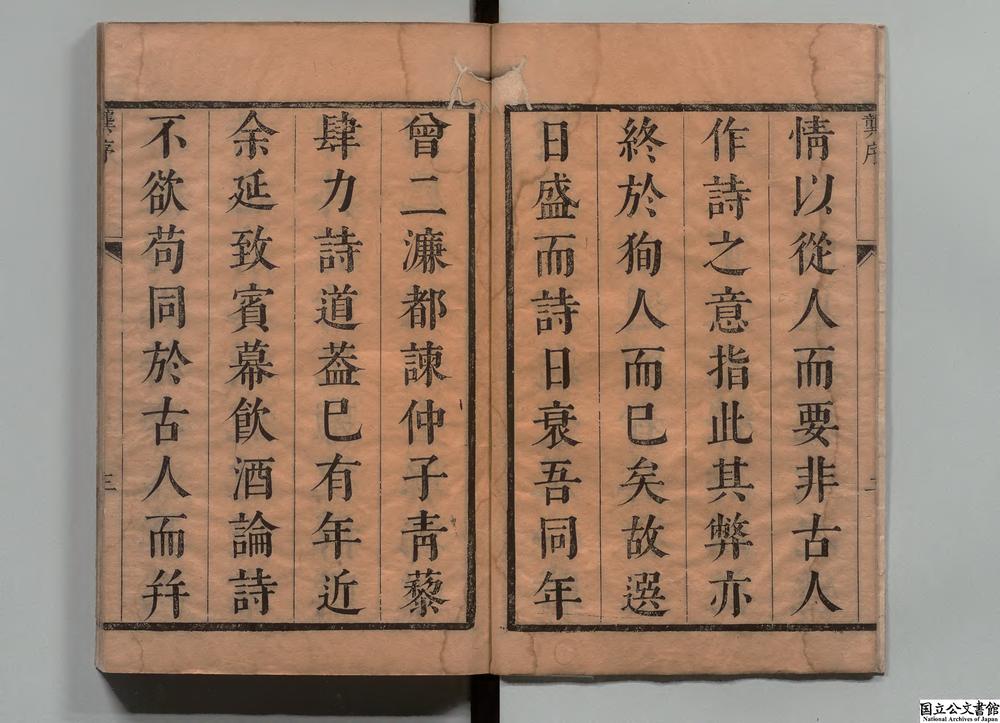 龔序
二
情以從人而要非古人
作詩之意指此其弊亦
終於狥人而已矣故選
日盛而詩日衰吾同年
曾二濂都諫仲子青藜
肆力詩道葢已有年近
余延致賓幕飲酒論詩
不欲苟同於古人而幷
龔序
三
国立公文書館
National Archives of Japan